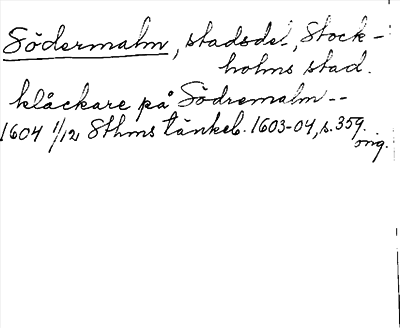 Södermalm, stadsdel, Stock-
holms stad.
klåckare på Södremalm --
1604 1/12 Sthms tänkeb. 1603-04, s. 359.
orig.